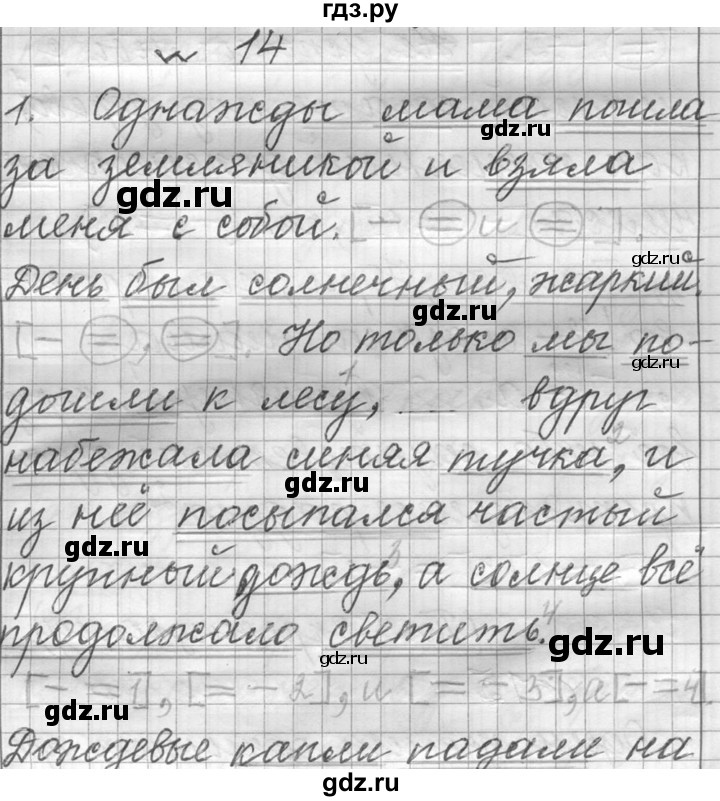 гдз.ру
14
1. Однажды мама пошла
gdz.ru
за земляникой и взяла
gdz.ru
меня с собой. [– = и =].
gdz.ru
День был солнечный, жаркий.
gdz.ru
[– =, =]. Но только мы по-
gdz.ru
дошли к лесу,1 вдруг
набежала синяя тучка,2 и
gdz.ru
из неё посыпался частый
gdz.ru
крупный дождь,3 а солнце всё
gdz.ru
продолжало светить.4
gdz.ru
gdz.ru
[– = 1], [= – 2], и [= – 3], а [– = 4].
gdz.ru
Дождевые капли падали на
gdz.ru
gdz.ru